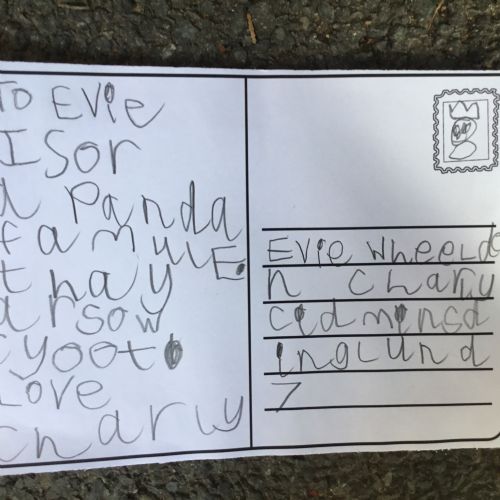 To Evie
I Sor
a Panda
famulE.
thay
arsow
cyoot
Love
charly
Evie wheelde
n charly
cidminsd
inglund
7